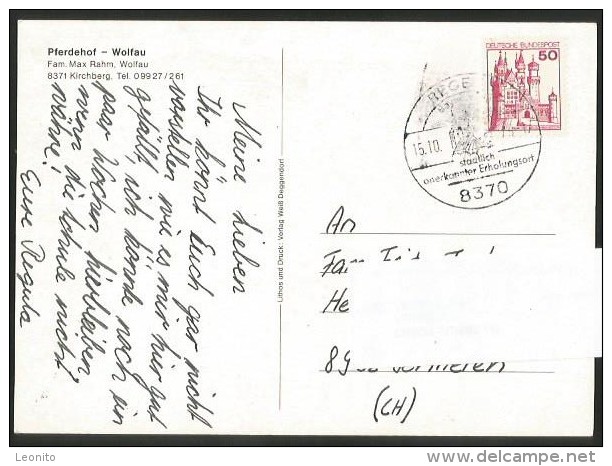 Pferdehof – Wolfau
Fam. Max Rahm, Wolfau
8371 Kirchberg, Tel. 09927/261
Meine Lieben
Ihr könnt Euch gar nicht
vorstellen wie es mir hier gut
gefällt, ich könnte noch ein
paar Wochen hierbleiben
wenn die Schule nicht
wäre!
Eure Regula
Lithos und Druck: Verlag Weiß Deggendorf
DEUTSCHE BUNDESPOST
50
REGE
15.10.
staatlich
anerkannter Erholungsort
8370
An
Fa
He
89
(CH)
Leonito
www.delcampe.net